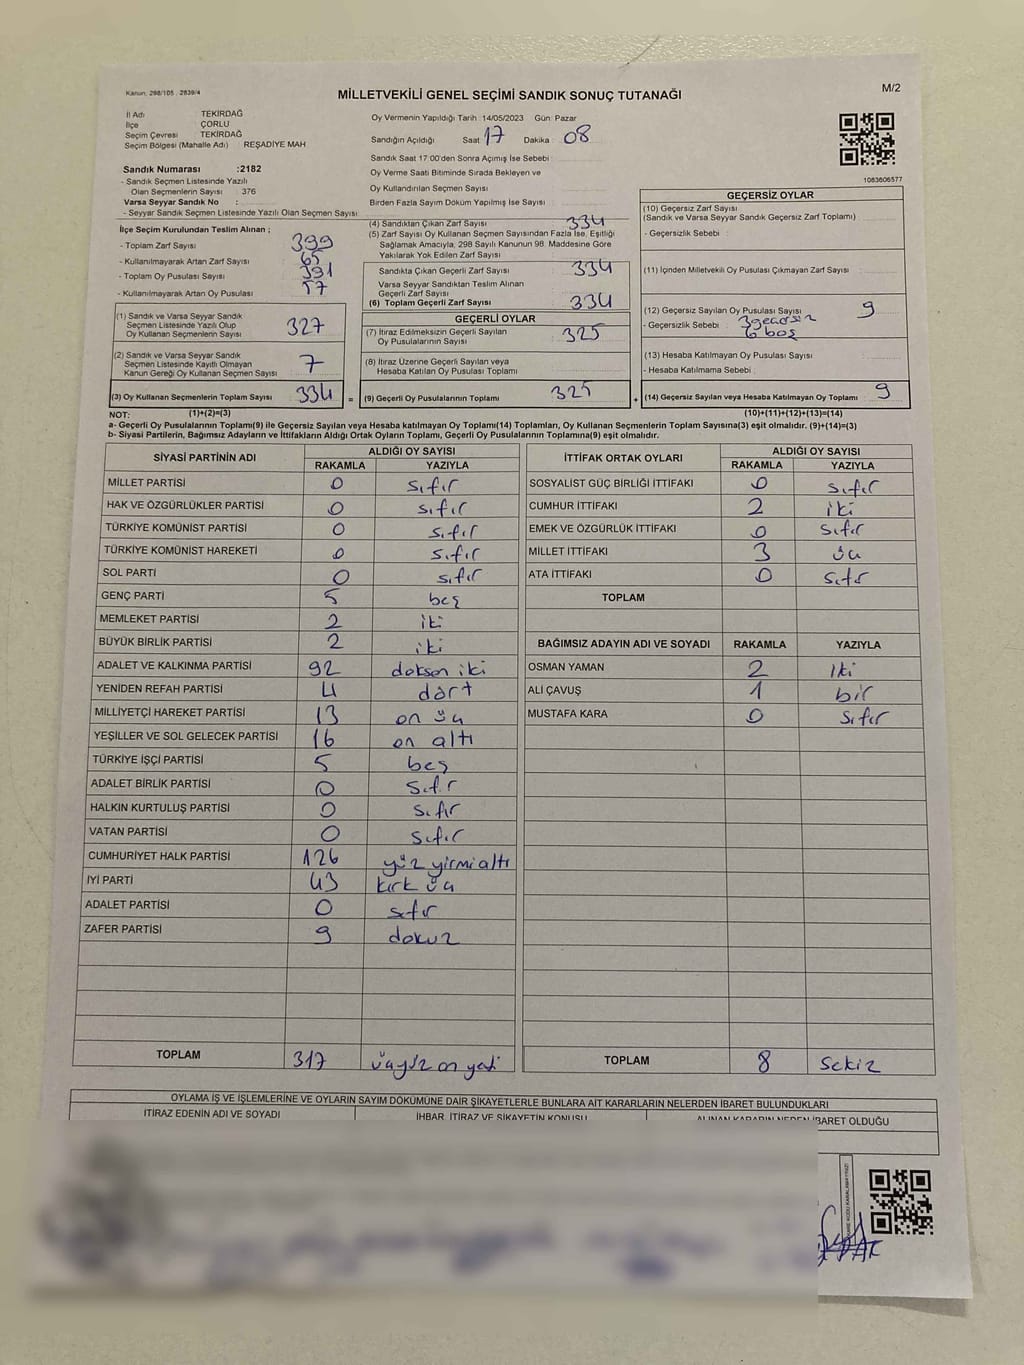 Kanun, 298/105, 2839/4
MİLLETVEKİLİ GENEL SEÇİMİ SANDIK SONUÇ TUTANAĞI
M/2
İl Adı TEKİRDAĞ
İlçe ÇORLU
Seçim Çevresi TEKİRDAĞ
Seçim Bölgesi (Mahalle Adı) REŞADİYE MAH
Sandık Numarası :2182
- Sandık Seçmen Listesinde Yazılı
Olan Seçmenlerin Sayısı 376
Varsa Seyyar Sandık No :
- Seyyar Sandık Seçmen Listesinde Yazılı Olan Seçmen Sayısı:
Oy Vermenin Yapıldığı Tarih :14/05/2023 Gün: Pazar
Sandığın Açıldığı Saat 17 Dakika 08
Sandık Saat 17:00'den Sonra Açımış İse Sebebi
Oy Verme Saati Bitiminde Sırada Bekleyen ve
Oy Kullandırılan Seçmen Sayısı
Birden Fazla Sayım Döküm Yapılmış İse Sayısı
1083606577
İlçe Seçim Kurulundan Teslim Alınan ;
- Toplam Zarf Sayısı 399
- Kullanılmayarak Artan Zarf Sayısı 65
- Toplam Oy Pusulası Sayısı 391
- Kullanılmayarak Artan Oy Pusulası 57
(1) Sandık ve Varsa Seyyar Sandık
Seçmen Listesinde Yazılı Olup
Oy Kullanan Seçmenlerin Sayısı 327
(2) Sandık ve Varsa Seyyar Sandık
Seçmen Listesinde Kayıtlı Olmayan
Kanun Gereği Oy Kullanan Seçmen Sayısı 7
(3) Oy Kullanan Seçmenlerin Toplam Sayısı 334 =
(4) Sandıktan Çıkan Zarf Sayısı 334
(5) Zarf Sayısı Oy Kullanan Seçmen Sayısından Fazla İse, Eşitliği
Sağlamak Amacıyla, 298 Sayılı Kanunun 98. Maddesine Göre
Yakılarak Yok Edilen Zarf Sayısı
Sandıkta Çıkan Geçerli Zarf Sayısı 334
Varsa Seyyar Sandıktan Teslim Alınan
Geçerli Zarf Sayısı
(6) Toplam Geçerli Zarf Sayısı 334
GEÇERLİ OYLAR
(7) İtiraz Edilmeksizin Geçerli Sayılan
Oy Pusulalarının Sayısı 325
(8) İtiraz Üzerine Geçerli Sayılan veya
Hesaba Katılan Oy Pusulası Toplamı
(9) Geçerli Oy Pusulalarının Toplamı 325 +
GEÇERSİZ OYLAR
(10) Geçersiz Zarf Sayısı
(Sandık ve Varsa Seyyar Sandık Geçersiz Zarf Toplamı)
- Geçersizlik Sebebi :
(11) İçinden Milletvekili Oy Pusulası Çıkmayan Zarf Sayısı
(12) Geçersiz Sayılan Oy Pusulası Sayısı 9
- Geçersizlik Sebebi : 3 geçersiz
6 boş
(13) Hesaba Katılmayan Oy Pusulası Sayısı
- Hesaba Katılmama Sebebi
(14) Geçersiz Sayılan veya Hesaba Katılmayan Oy Toplamı 9
NOT: (1)+(2)=(3) (10)+(11)+(12)+(13)=(14)
a- Geçerli Oy Pusulalarının Toplamı(9) ile Geçersiz Sayılan veya Hesaba katılmayan Oy Toplamı(14) Toplamları, Oy Kullanan Seçmenlerin Toplam Sayısına(3) eşit olmalıdır. (9)+(14)=(3)
b- Siyasi Partilerin, Bağımsız Adayların ve İttifakların Aldığı Ortak Oyların Toplamı, Geçerli Oy Pusulalarının Toplamına(9) eşit olmalıdır.
SİYASİ PARTİNİN ADI ALDIĞI OY SAYISI
RAKAMLA YAZIYLA
MİLLET PARTİSİ 0 sıfır
HAK VE ÖZGÜRLÜKLER PARTİSİ 0 sıfır
TÜRKİYE KOMÜNİST PARTİSİ 0 sıfır
TÜRKİYE KOMÜNİST HAREKETİ 0 sıfır
SOL PARTİ 0 sıfır
GENÇ PARTİ 5 beş
MEMLEKET PARTİSİ 2 iki
BÜYÜK BİRLİK PARTİSİ 2 iki
ADALET VE KALKINMA PARTİSİ 92 doksan iki
YENİDEN REFAH PARTİSİ 4 dört
MİLLİYETÇİ HAREKET PARTİSİ 13 on üç
YEŞİLLER VE SOL GELECEK PARTİSİ 16 on altı
TÜRKİYE İŞÇİ PARTİSİ 5 beş
ADALET BİRLİK PARTİSİ 0 sıfır
HALKIN KURTULUŞ PARTİSİ 0 sıfır
VATAN PARTİSİ 0 sıfır
CUMHURİYET HALK PARTİSİ 126 yüz yirmi altı
İYİ PARTİ 43 kırk üç
ADALET PARTİSİ 0 sıfır
ZAFER PARTİSİ 9 dokuz
TOPLAM 317 üçyüz on yedi
İTTİFAK ORTAK OYLARI ALDIĞI OY SAYISI
RAKAMLA YAZIYLA
SOSYALİST GÜÇ BİRLİĞİ İTTİFAKI 0 sıfır
CUMHUR İTTİFAKI 2 iki
EMEK VE ÖZGÜRLÜK İTTİFAKI 0 sıfır
MİLLET İTTİFAKI 3 üç
ATA İTTİFAKI 0 sıfır
TOPLAM
BAĞIMSIZ ADAYIN ADI VE SOYADI RAKAMLA YAZIYLA
OSMAN YAMAN 2 iki
ALİ ÇAVUŞ 1 bir
MUSTAFA KARA 0 sıfır
TOPLAM 8 sekiz
OYLAMA İŞ VE İŞLEMLERİNE VE OYLARIN SAYIM DÖKÜMÜNE DAİR ŞİKAYETLERLE BUNLARA AİT KARARLARIN NELERDEN İBARET BULUNDUKLARI
İTİRAZ EDENİN ADI VE SOYADI İHBAR, İTİRAZ VE ŞİKAYETİN KONUSU ALINAN KARARIN NEDEN İBARET OLDUĞU